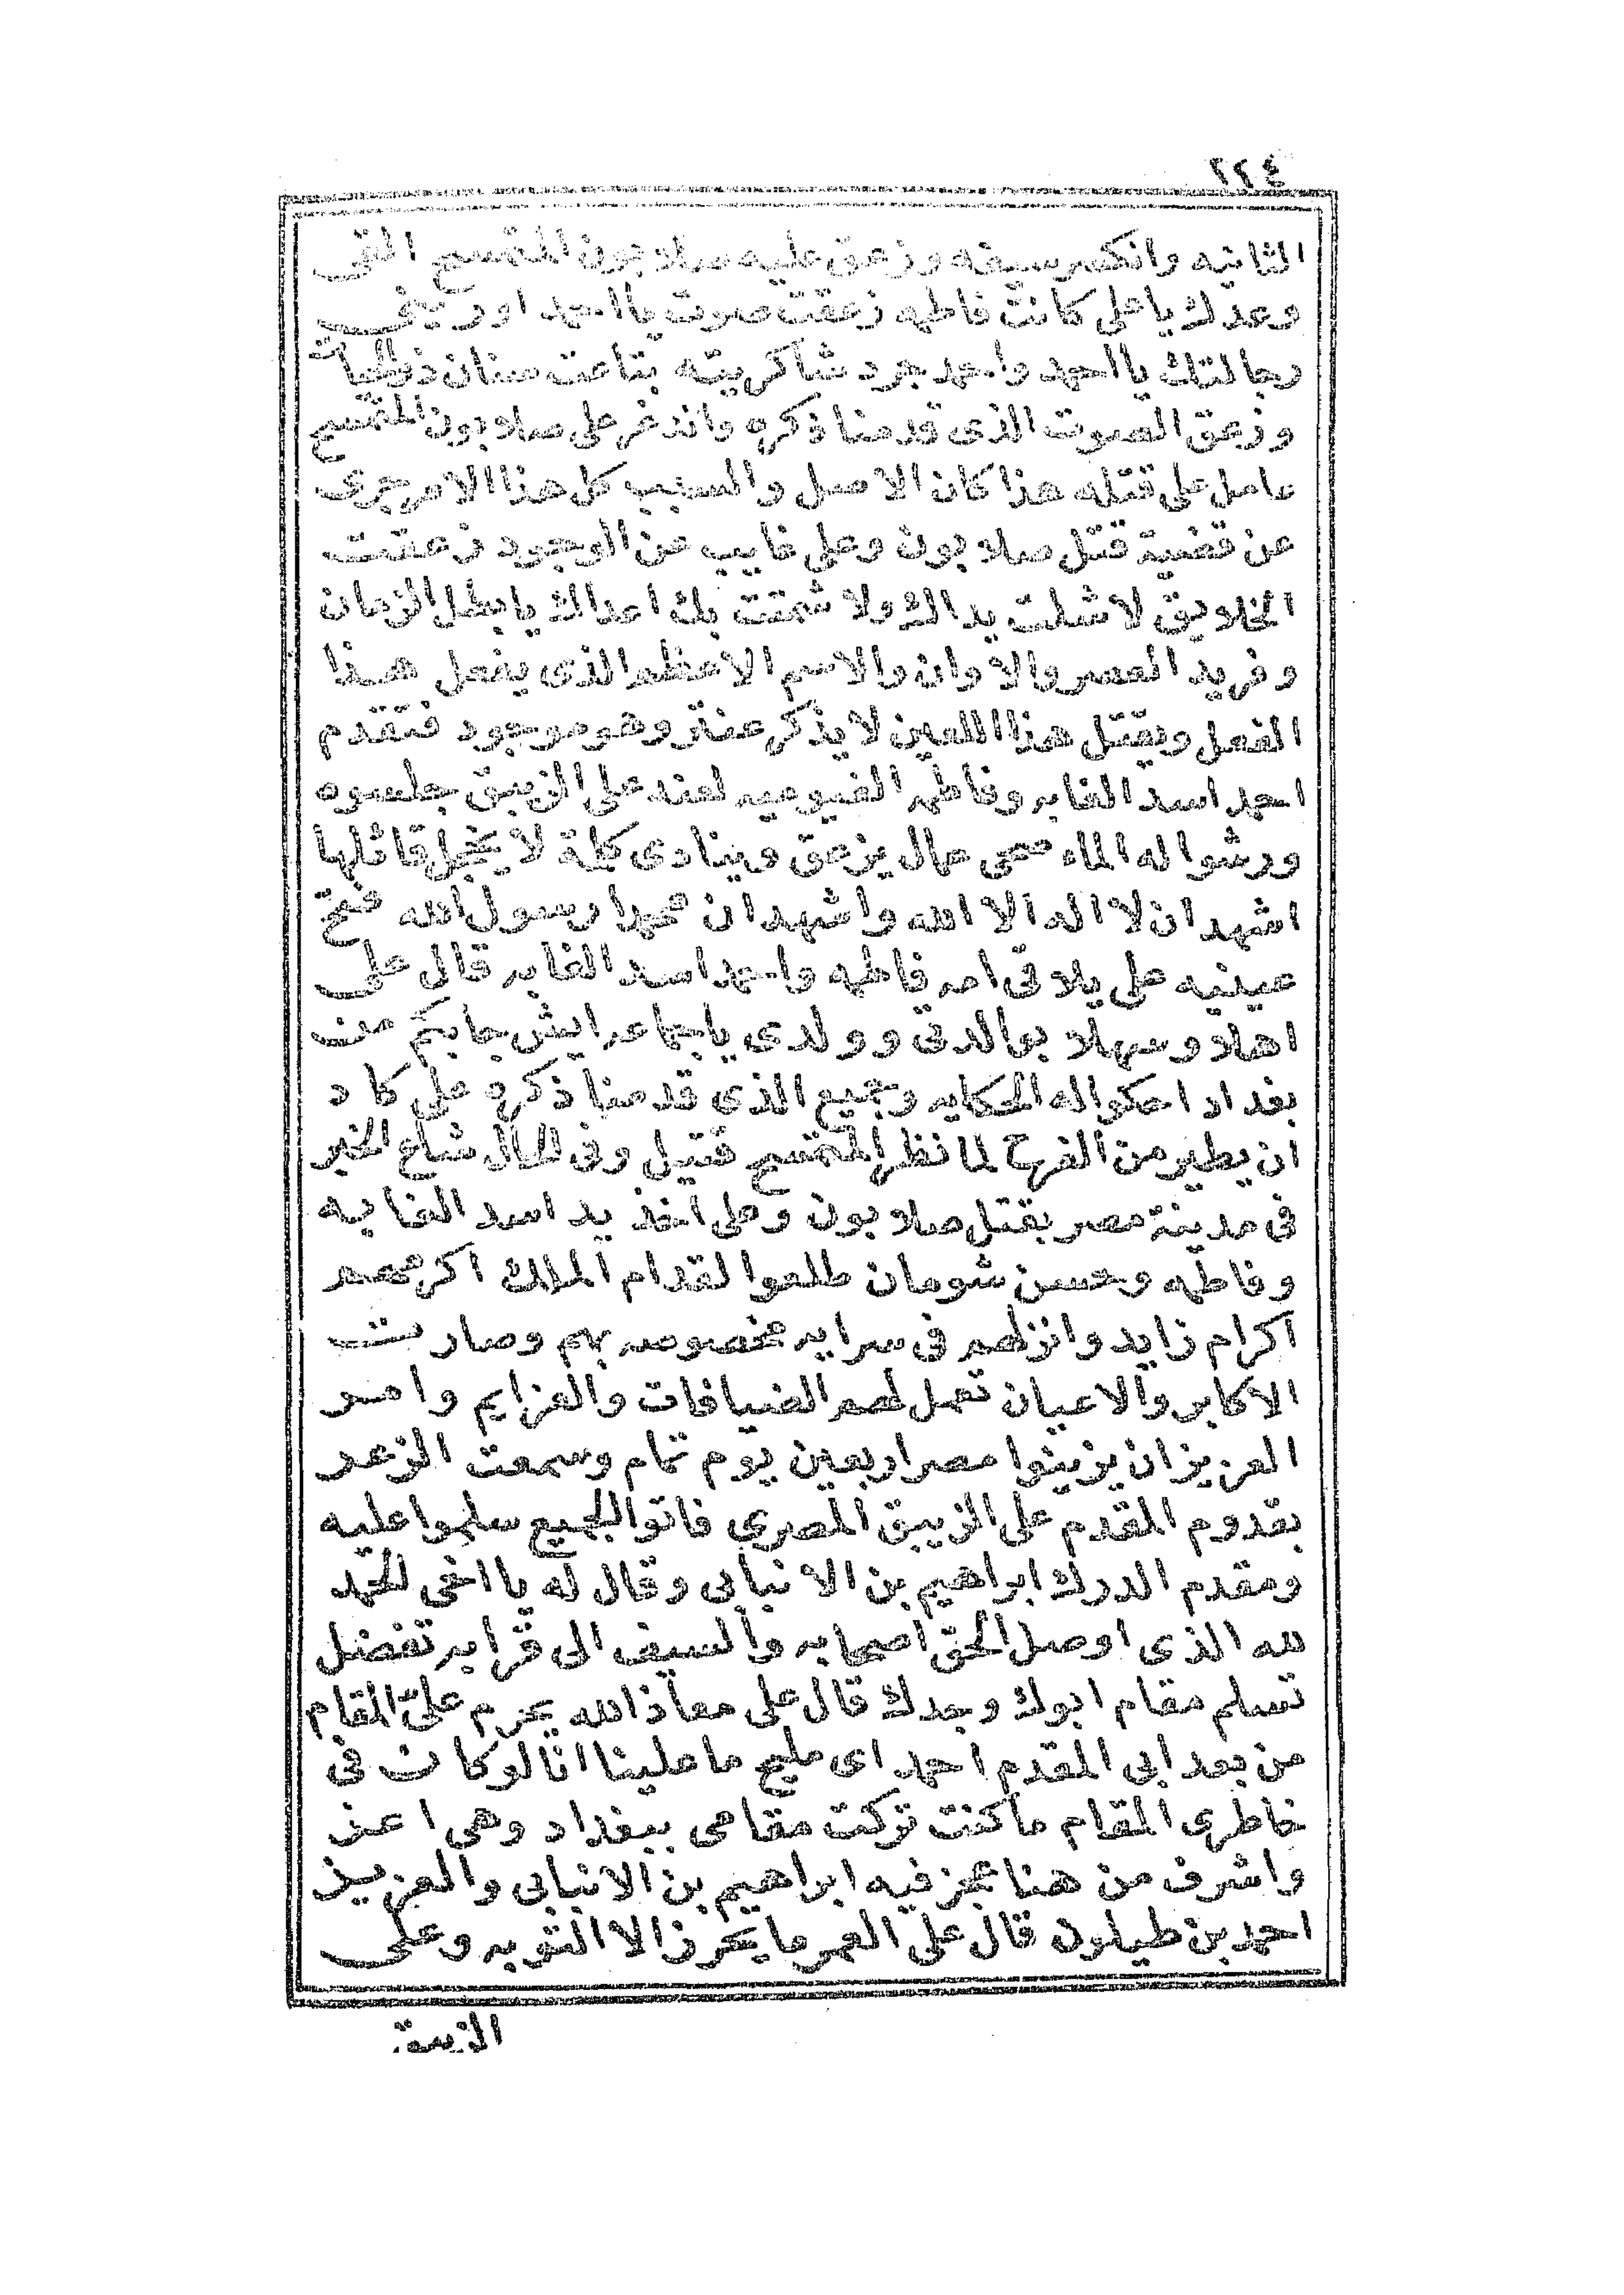 ٢٢٤
الثانيه وانكسر سيفه وزعق عليه صلاجون الملتمسح التقى
وعدك يا على كانت فاطمه زعقت صوت يا احمد اورينى
رجالتك يا احمد واحمد جرد شاكريته بتاعت سنان ذو
وزعق الصوت الذى قدمنا ذكره واندغر على صلابون
عامل على قتله هذا كان الاصل والسبب كل هذا الامر جرى
عن قضية قتل صلابون وعلى غايب عن الوجود زعقت
الخلايق لاشلت يداك ولا شمتت بك اعداك يا بطل الزمان
وفريد العصر والاوان والاسم الاعظم الذى يفعل هذا
الفعل ويقتل هذا اللعين لا يذكر عنتر وهو موجود فتقدم
احمد اسد الغابه وفاطمه الفيوميه لعند على الزيبق جلسوه
ورشوا له الماء صحى عمال يزعق وينادى كلمة لا يخجل قائلها
اشهد ان لا اله الا الله واشهد ان محمدا رسول الله فتح
عينيه على يلاقى امه فاطمه واحمد اسد الغابه قال على
اهلا وسهلا بوالدتى وولدى ياجماعه ايش جابكم من
بغداد احكوا له الحكايه وجميع الذى قدمنا ذكره على كاد
ان يطير من الفرح لما نظر قتيل وفى الحال شاع الخبر
فى مدينة مصر بقتل صلابون وعلى اخذ بيد اسد الغابه
وفاطمه وحسن شومان طلعوا لقدام الملك اكرمهم
اكرام زايد وانزلهم فى سرايه مخصوصه بهم وصارت
الاكابر والاعيان تعمل لهم الضيافات والعزايم وامر
العزيز ان يزينوا مصر اربعين يوم تمام وسمعت الزعر
بقدوم المقدم على الزيبق المصرى فاتوا الجميع سلموا عليه
ومقدم الدرك ابراهيم بن الانبابى وقال له يا اخى الحمد
لله الذى اوصل الحق اصحابه والسيف الى قرابه تفضل
تسلم مقام ابوك وجدك قال على معاذ الله يحرم علىّ المقام
من بعد ابى المقدم احمد اى مليح ما علينا انا لو كان فى
خاطرى المقام ما كنت تركت مقامى ببغداد وهى اعز
واشرف من هنا عجز فيه ابراهيم بن الانبابى والعزيز
احمد بن طيلون قال على العمر ما يحرز الا التوبه وعلى
الزيبق